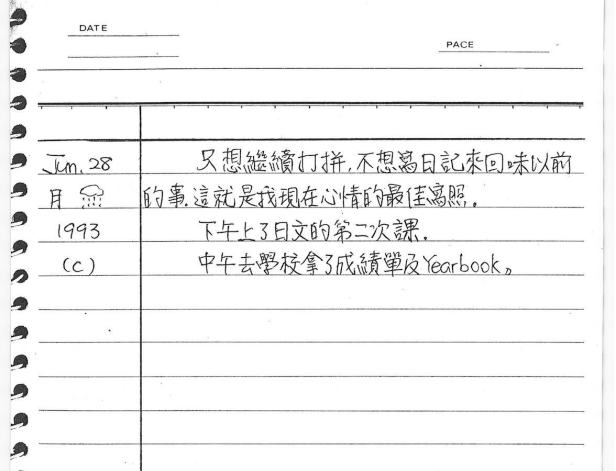 DATE
PACE
Jun. 28 只想繼續打拼,不想寫日記來回味以前
月 的事.這就是我現在心情的最佳寫照.
1993 下午上了日文的第二次課.
(C) 中午去學校拿了成績單及Yearbook。